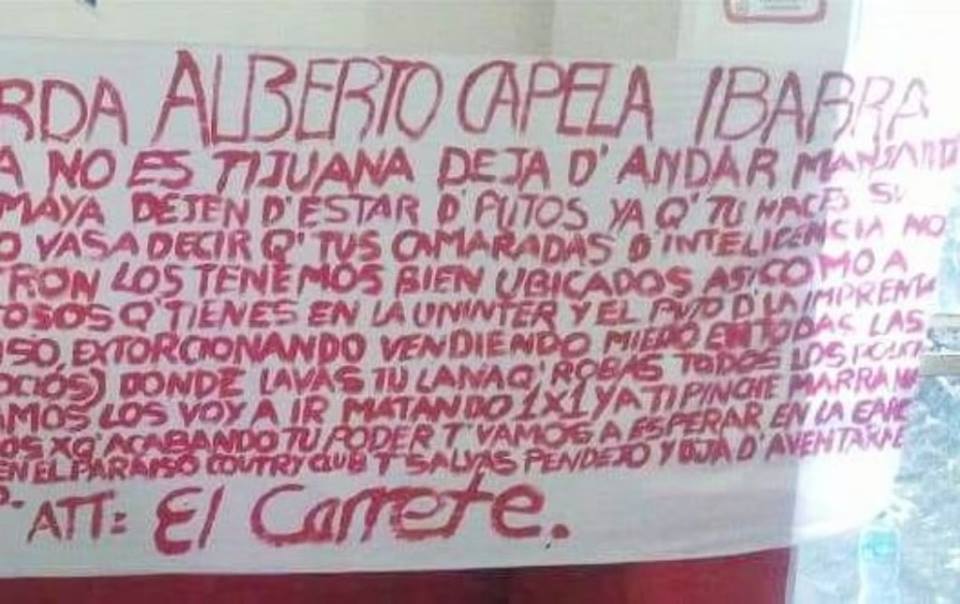 RDA ALBERTO CAPELA IBARRA
A NO ES TIJUANA DEJA D' ANDAR
MAYA DEJEN D' ESTAR D' PUTOS YA Q' TU HACES SU
O VAS A DECIR Q' TUS CAMARADAS D' INTELIGENCIA NO
TRON LOS TENEMOS BIEN UBICADOS ASI COMO A
TOSOS Q' TIENES EN LA UNINTER Y EL PUTO D' LA IMPRENTA
ISO, EXTORCIONANDO VENDIENDO MIEDO EN TODAS LAS
OCIÓS) DONDE LAVAS TU LANA Q' ROBAS TODOS LOS
AMOS LOS VOY A IR MATANDO 1X1 YA TI PINCHE MARRANA
OS XQ' ACABANDO TU PODER T' VAMOS A ESPERAR EN LA
EN EL PARAISO COUTRY CLUB T SALVAS PENDEJO Y DJA D' AVENTARME
ATT: El Carrete.